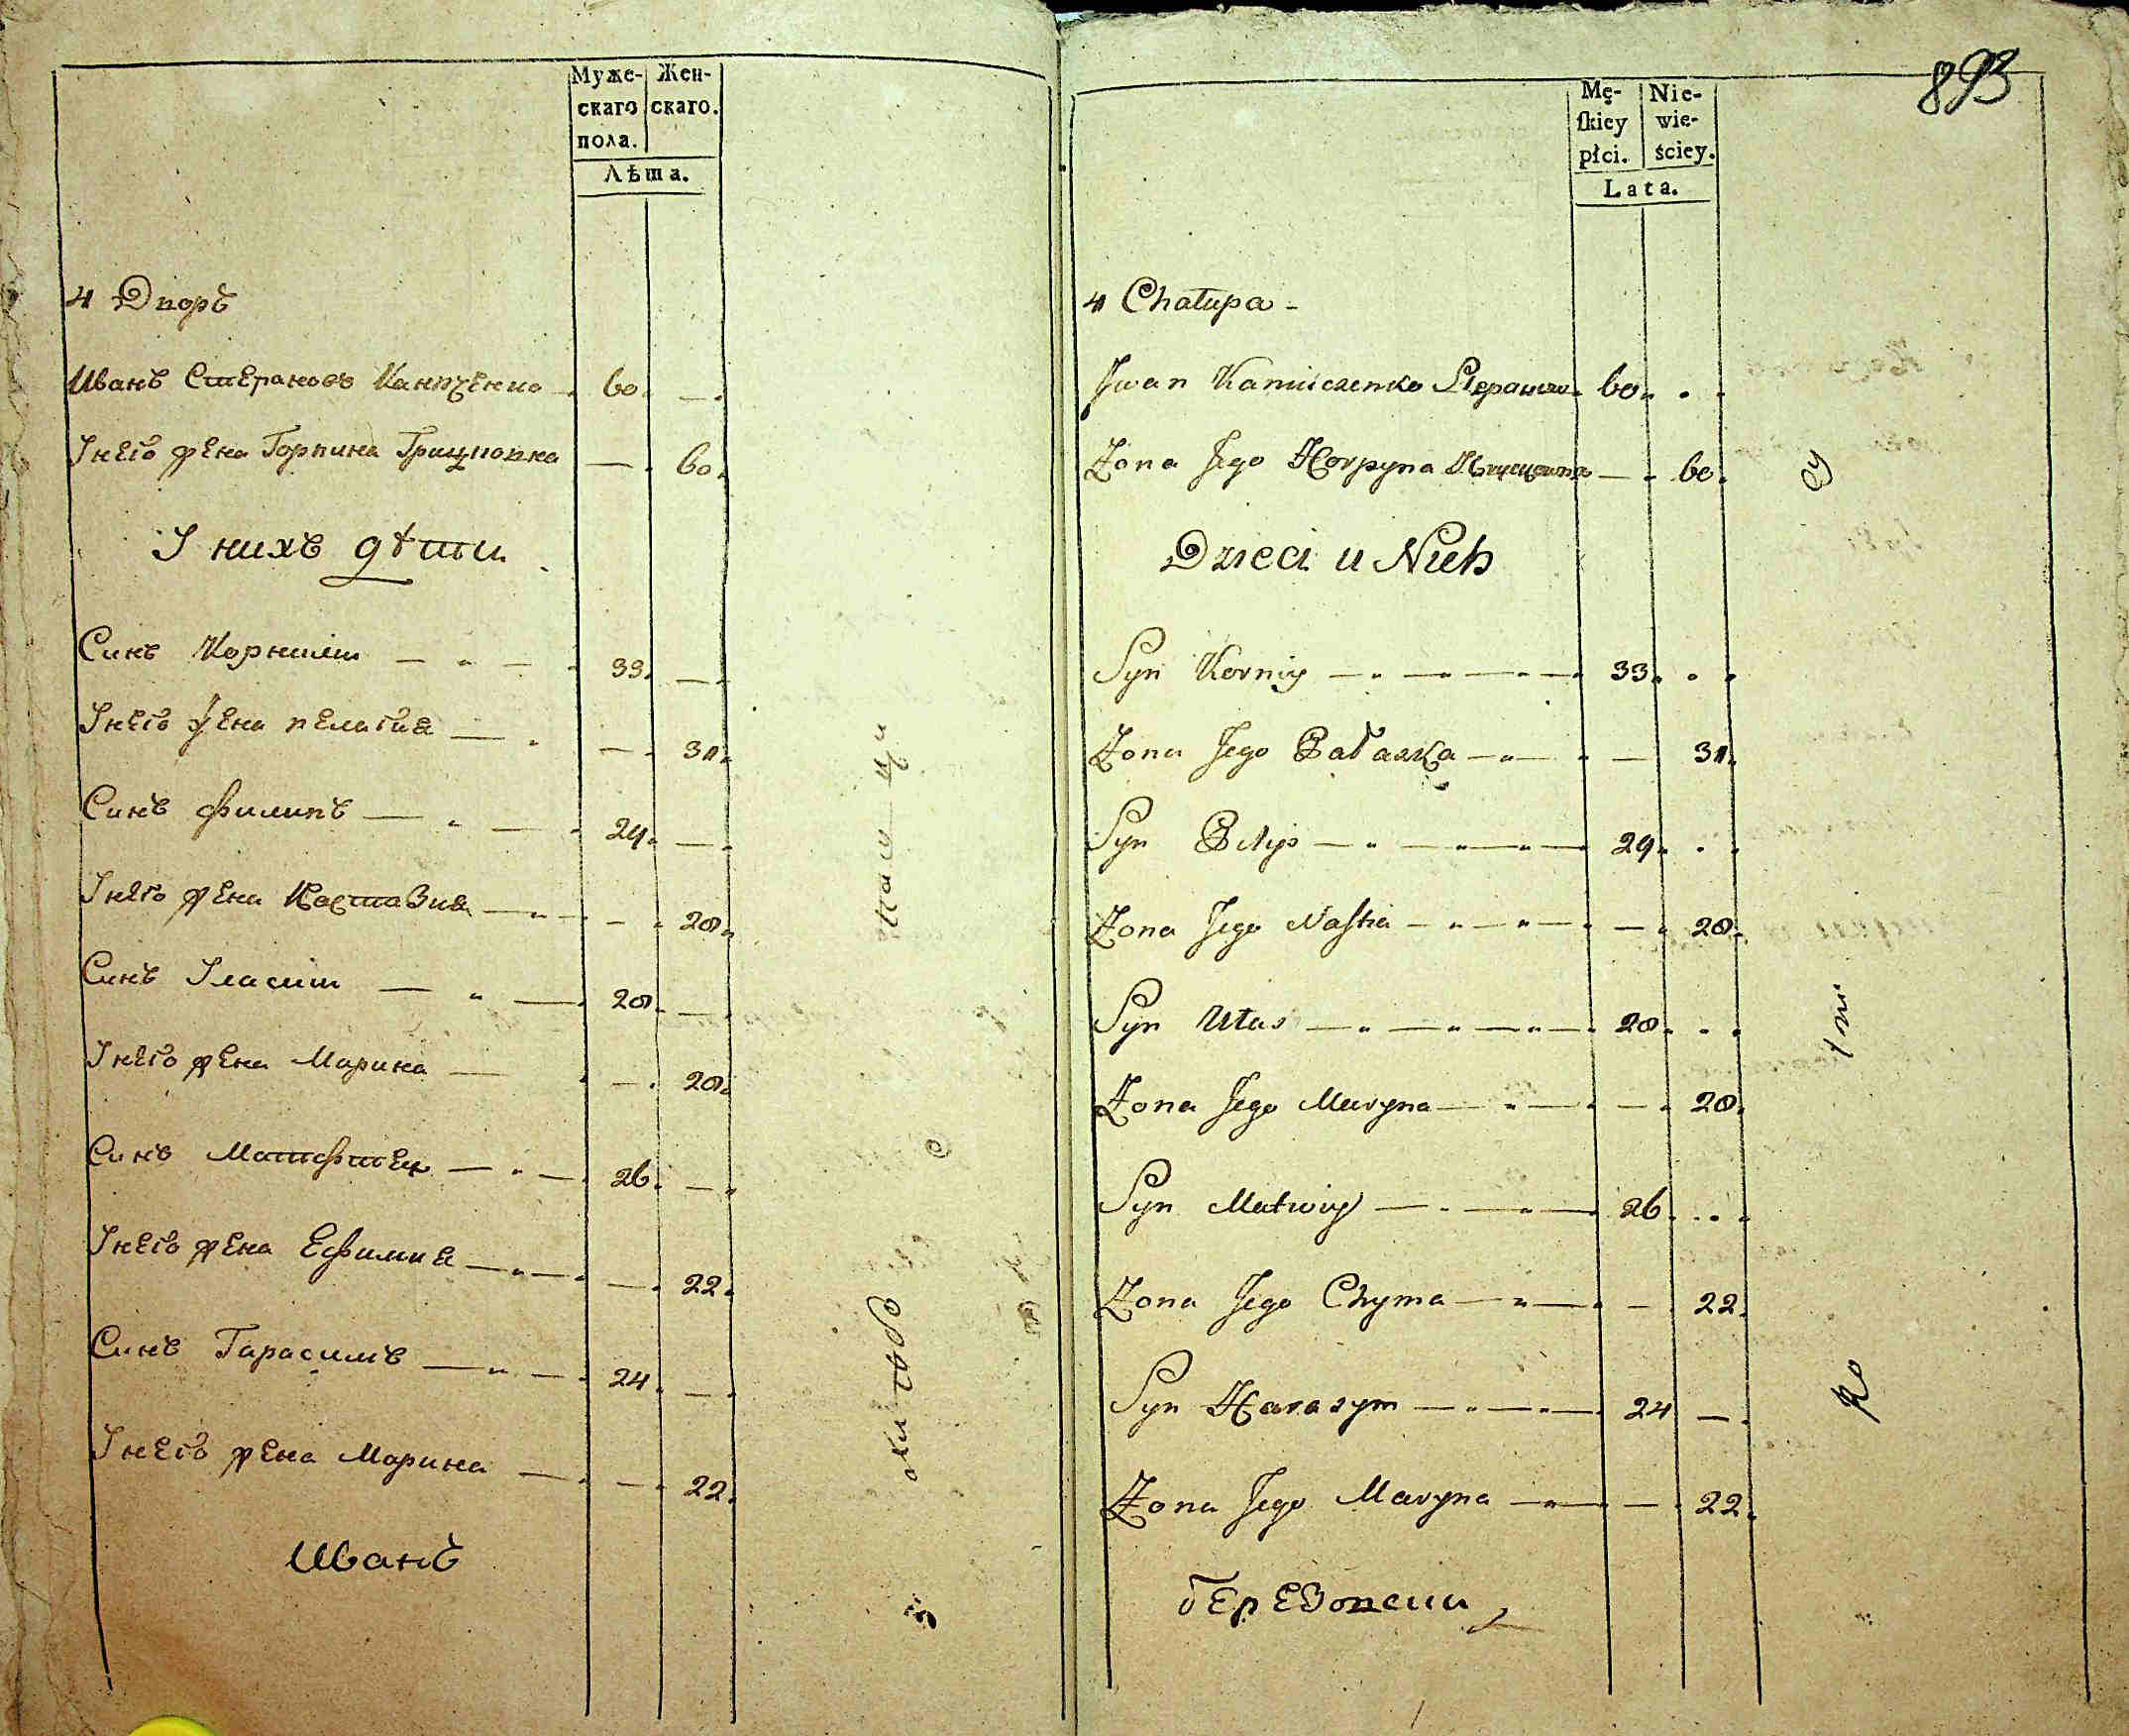 Муже-
скаго
пола.
Жен-
скаго.
Лѣта.
4 Дворъ
Иванъ Степановъ 60
Унего жена Горпина Грицковна 60
У нихъ дѣти
Синъ Корнилій 33
Унего жена пелагия 31
Синъ Филипъ 29
Унего жена Настазия 28
Синъ Уласій 28
Унего жена Марина 28
Синъ Матфѣей 26
Унего жена Ефимия 22
Синъ Гарасимъ 24
Унего жена Марина 22
Иванъ
893
Mę-
ſkiey
płci.
Nie-
wie-
ściey.
Lata.
4 Chałupa
Jwan Kaniuczenko 60
Żona Jego Horpyna 60
Dzieci u Nich
Syn Korniy 33
Żona Jego Pałaszka 31
Syn Pilip 29
Żona Jego Naſtia 28
Syn Ułas 28
Żona Jego Maryna 28
Syn Matwiy 26
Żona Jego Chyma 22
Syn Harasym 24
Żona Jego Maryna 22
березовски